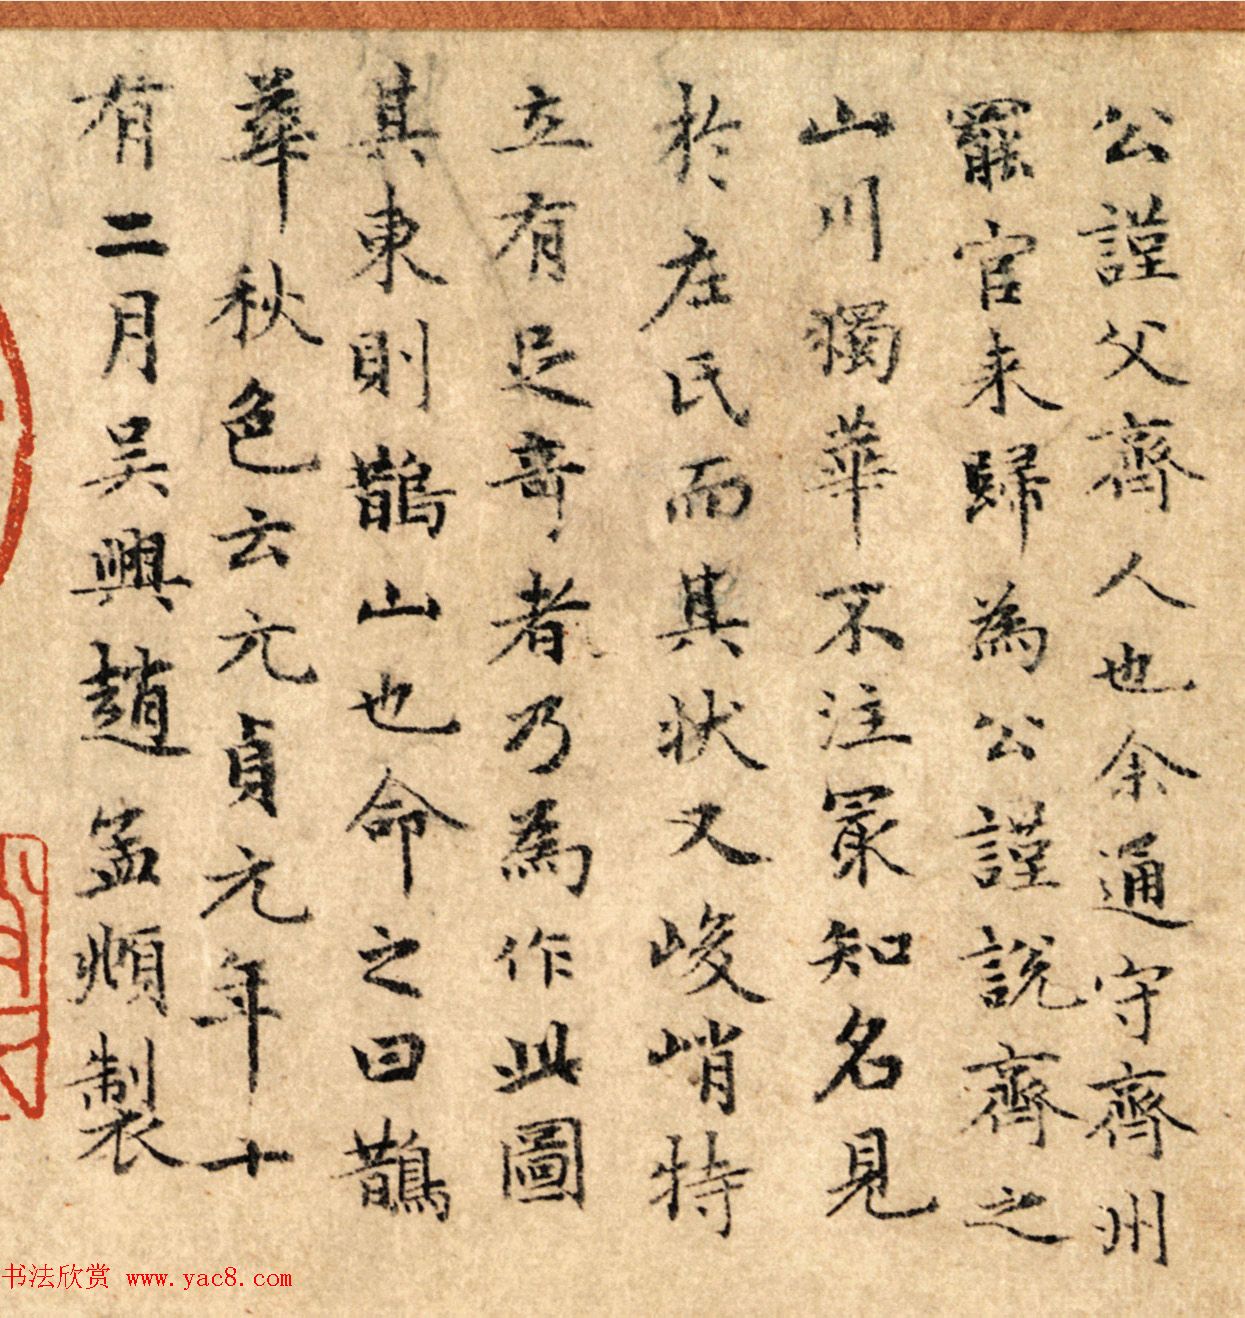 公謹父齊人也余通守齊州
罷官来歸為公謹說齊之
山川獨華不注最知名見
於左氏而其状又峻峭特
立有足奇者乃為作此圖
其東則鵲山也命之曰鵲
華秋色云元貞元年十
有二月吴興趙孟頫製
书法欣赏 www.yac8.com